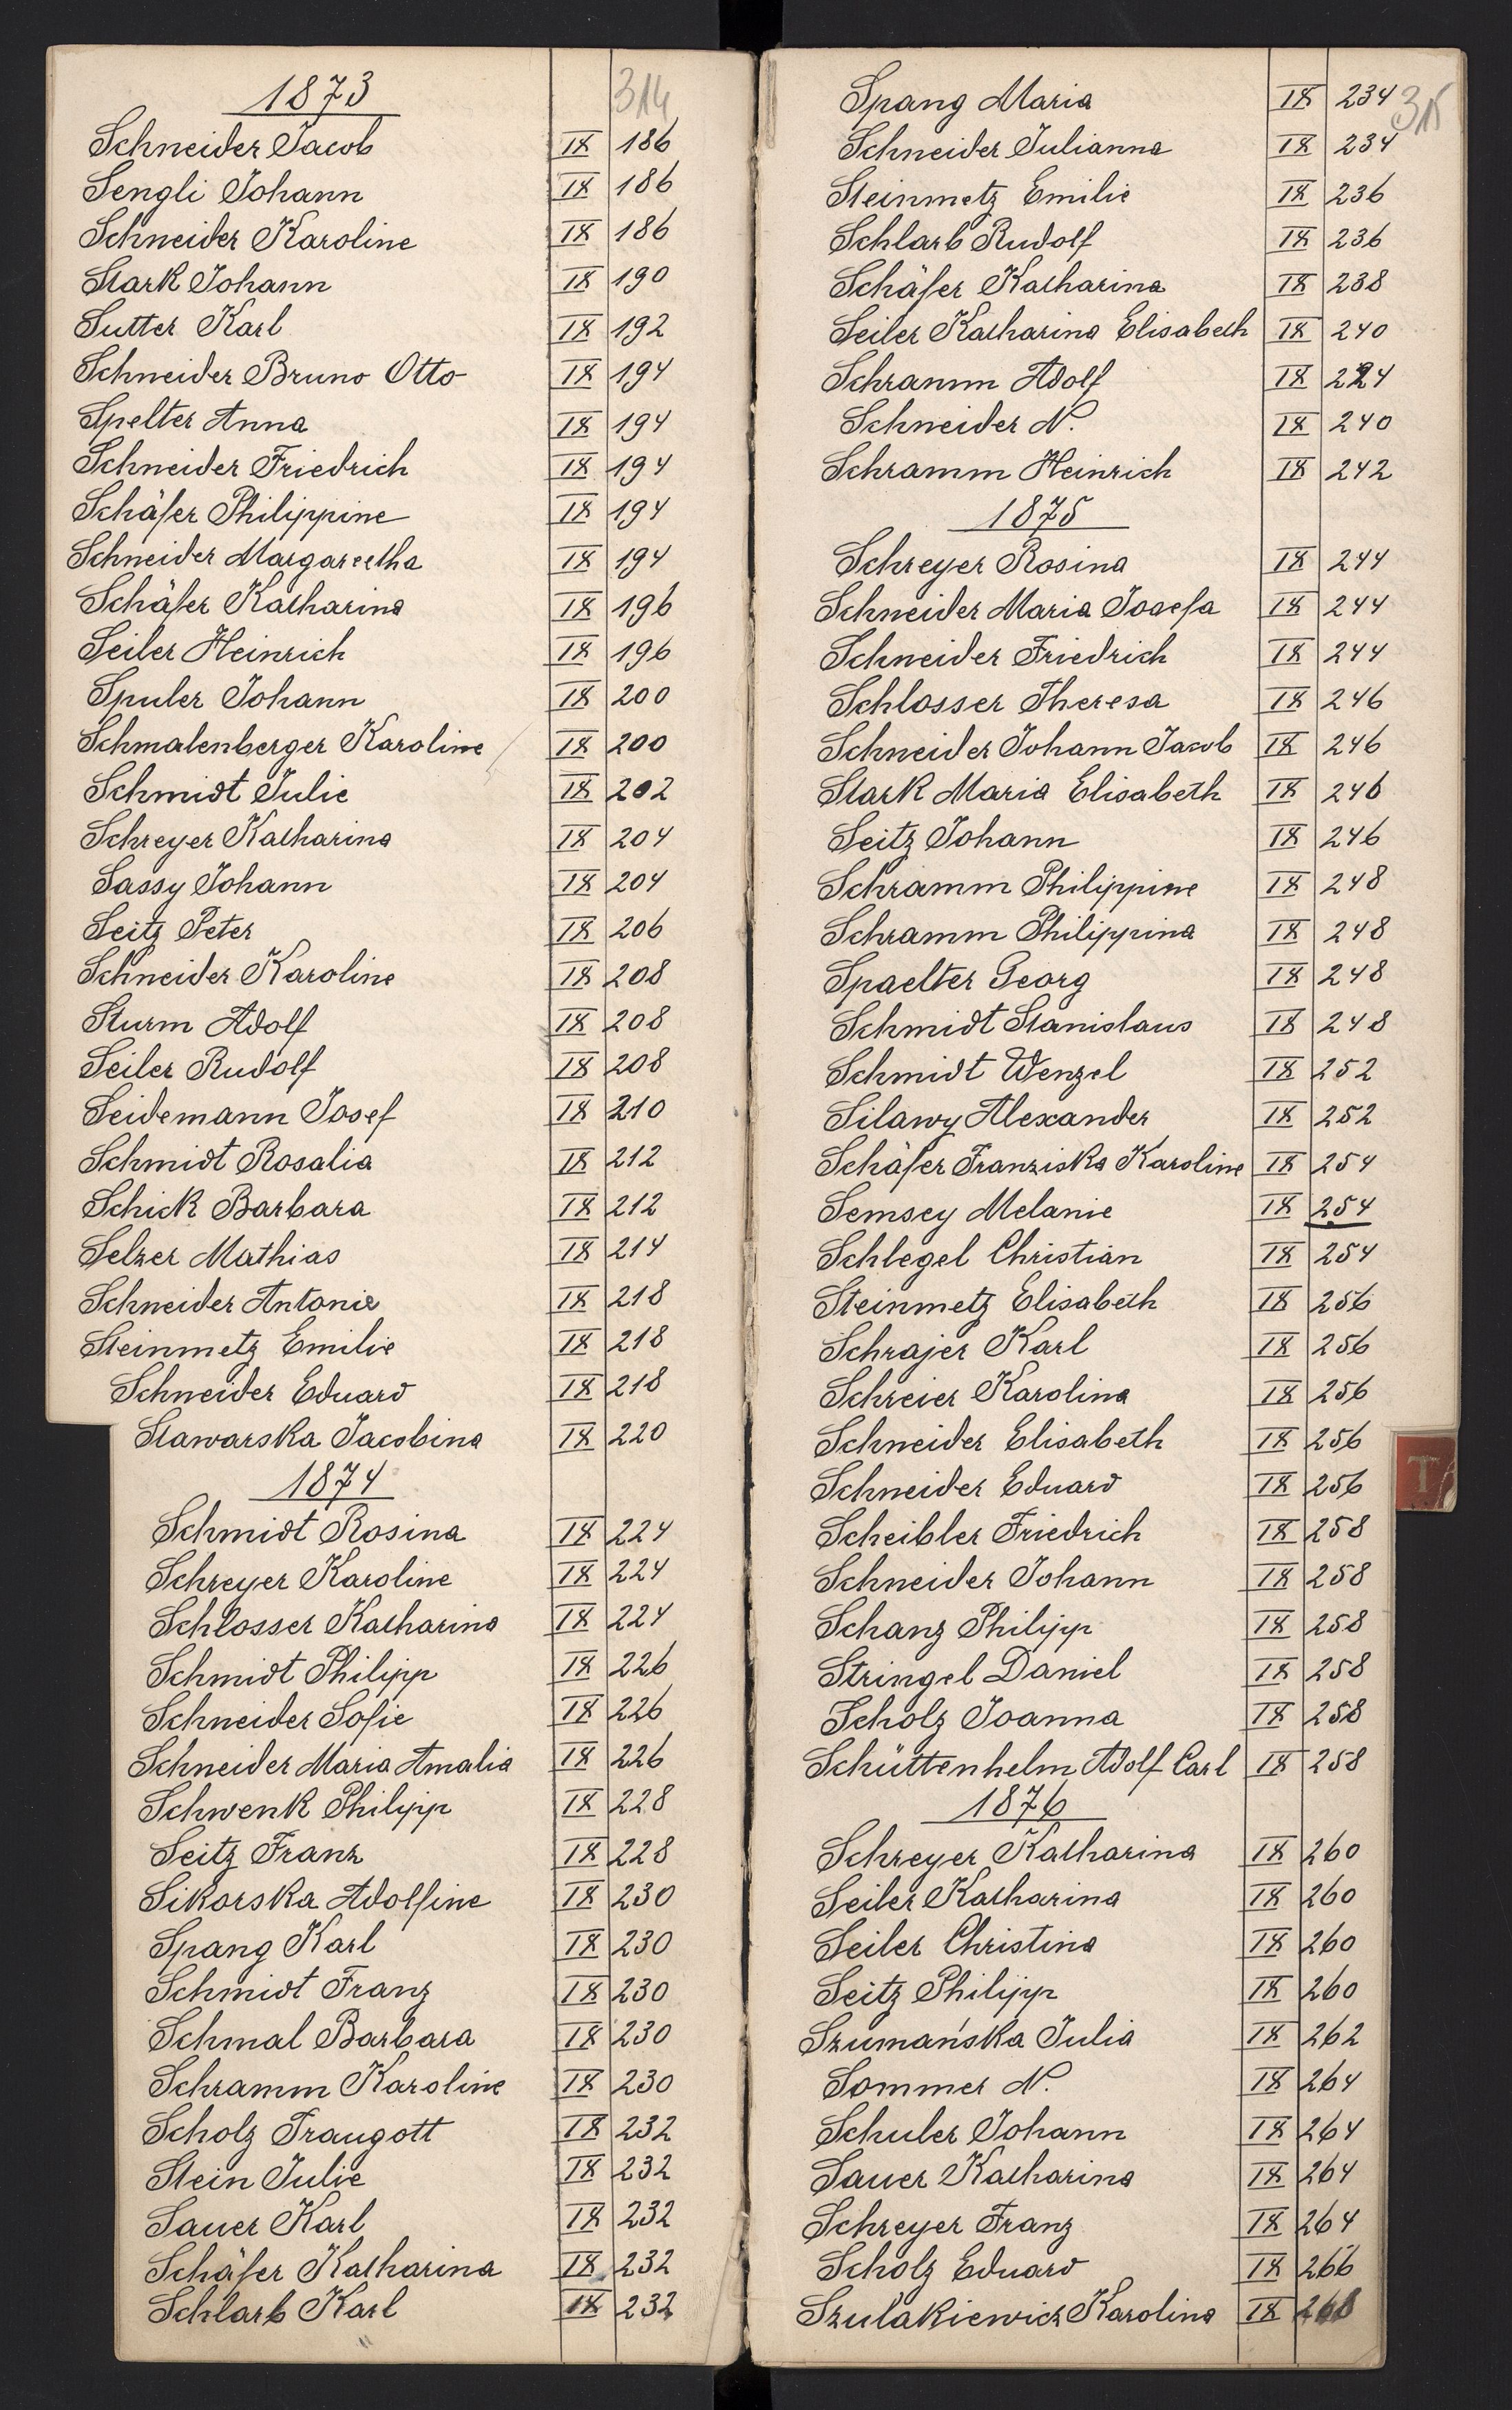 314
1873
Schneider Jacob IX 186
Sengli Johann IX 186
Schneider Karoline IX 186
Stark Johann IX 190
Sutter Karl IX 192
Schneider Bruno Otto IX 194
Spelter Anna IX 194
Schneider Friedrich IX 194
Schäfer Philippine IX 194
Schneider Margareetha IX 194
Schäfer Katharina IX 196
Seiler Heinrich IX 196
Spuler Johann IX 200
Schmalenberger Karoline IX 200
Schmidt Julie IX 202
Schreyer Katharina IX 204
Sassy Johann IX 204
Seitz Peter IX 206
Schneider Karoline IX 208
Sturm Adolf IX 208
Seiler Rudolf IX 208
Seidemann Josef IX 210
Schmidt Rosalia IX 212
Schick Barbara IX 212
Selzer Mathias IX 214
Schneider Antonie IX 218
Steinmetz Emilie IX 218
Schneider Eduard IX 218
Stawarska Jacobina IX 220
1874
Schmidt Rosina IX 224
Schreyer Karoline IX 224
Schlosser Katharina IX 224
Schmidt Philipp IX 226
Schneider Sofie IX 226
Schneider Maria Amalia IX 226
Schwenk Philipp IX 228
Seitz Franz IX 228
Sikorska Adolfine IX 230
Spang Karl IX 230
Schmidt Franz IX 230
Schmal Barbara IX 230
Schramm Karoline IX 230
Scholz Traugott IX 232
Stein Julie IX 232
Sauer Karl IX 232
Schäfer Katharina IX 232
Schlarb Karl IX 232
315
Spang Maria IX 234
Schneider Julianna IX 234
Steinmetz Emilie IX 236
Schlarb Rudolf IX 236
Schäfer Katharina IX 238
Seiler Katharina Elisabeth IX 240
Schramm Adolf IX 224
Schneider N. IX 240
Schramm Heinrich IX 242
1875
Schreyer Rosina IX 244
Schneider Maria Josefa IX 244
Schneider Friedrich IX 244
Schlosser Theresa IX 246
Schneider Johann Jacob IX 246
Stark Maria Elisabeth IX 246
Seitz Johann IX 246
Schramm Philippine IX 248
Schramm Philippina IX 248
Spaelter Georg IX 248
Schmidt Stanislaus IX 248
Schmidt Wenzel IX 252
Silawy Alexander IX 252
Schäfer Franziska Karoline IX 254
Semsey Melanie IX 254
Schlegel Christian IX 254
Steinmetz Elisabeth IX 256
Schrajer Karl IX 256
Schreier Karolina IX 256
Schneider Elisabeth IX 256
Schneider Eduard IX 256
Scheibler Friedrich IX 258
Schneider Johann IX 258
Schanz Philipp IX 258
Stringel Daniel IX 258
Scholz Joanna IX 258
Schüttenhelm Adolf Carl IX 258
1876
Schreyer Katharina IX 260
Seiler Katharina IX 260
Seiler Christina IX 260
Seitz Philipp IX 260
Szumańska Julia IX 262
Sommer N. IX 264
Schuler Johann IX 264
Sauer Katharina IX 264
Schreyer Franz IX 264
Scholz Eduard IX 266
Szulakiewicz Karolina IX
T